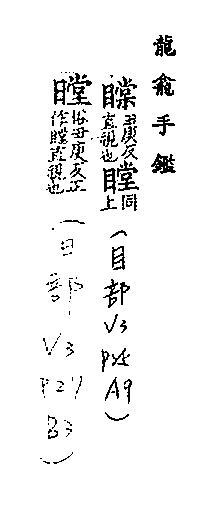 龍龕手鑑
丑庚反直視也瞠同上(目部 V3 A9)
俗丑庚反正作瞠直視也(日部 V3 P27 B3)